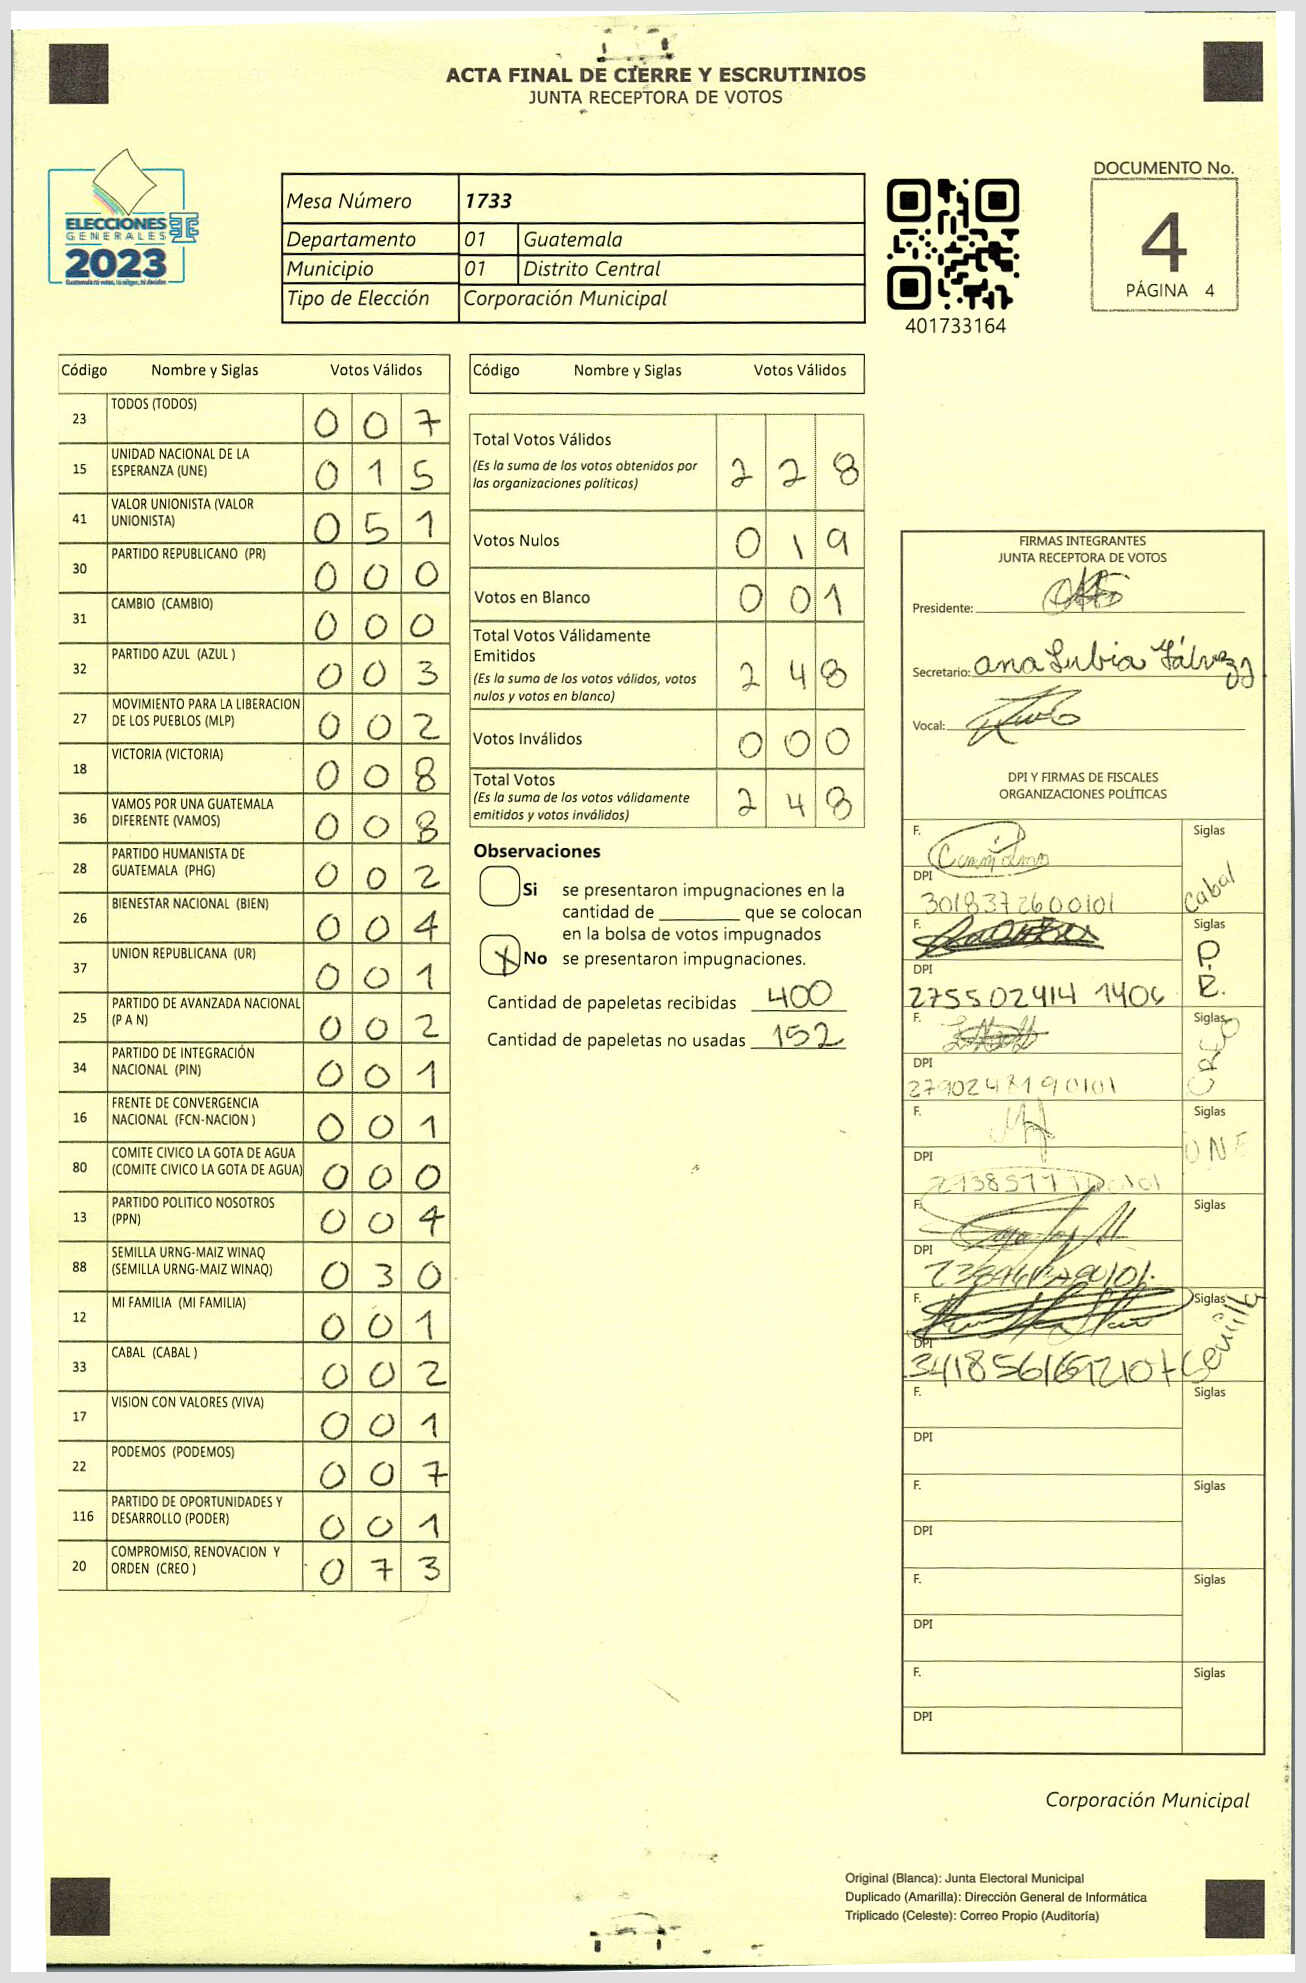 ACTA FINAL DE CIERRE Y ESCRUTINIOS
JUNTA RECEPTORA DE VOTOS
ELECCIONES
GENERALES
2023
Mesa Número 1733
Departamento 01 Guatemala
Municipio 01 Distrito Central
Tipo de Elección Corporación Municipal
401733164
DOCUMENTO No.
4
PÁGINA 4
Código Nombre y Siglas Votos Válidos
23 TODOS (TODOS) 0 0 7
15 UNIDAD NACIONAL DE LA ESPERANZA (UNE) 0 1 5
41 VALOR UNIONISTA (VALOR UNIONISTA) 0 5 1
30 PARTIDO REPUBLICANO (PR) 0 0 0
31 CAMBIO (CAMBIO) 0 0 0
32 PARTIDO AZUL (AZUL ) 0 0 3
27 MOVIMIENTO PARA LA LIBERACION DE LOS PUEBLOS (MLP) 0 0 2
18 VICTORIA (VICTORIA) 0 0 8
36 VAMOS POR UNA GUATEMALA DIFERENTE (VAMOS) 0 0 8
28 PARTIDO HUMANISTA DE GUATEMALA (PHG) 0 0 2
26 BIENESTAR NACIONAL (BIEN) 0 0 4
37 UNION REPUBLICANA (UR) 0 0 1
25 PARTIDO DE AVANZADA NACIONAL (P A N) 0 0 2
34 PARTIDO DE INTEGRACIÓN NACIONAL (PIN) 0 0 1
16 FRENTE DE CONVERGENCIA NACIONAL (FCN-NACION ) 0 0 1
80 COMITE CIVICO LA GOTA DE AGUA (COMITE CIVICO LA GOTA DE AGUA) 0 0 0
13 PARTIDO POLITICO NOSOTROS (PPN) 0 0 4
88 SEMILLA URNG-MAIZ WINAQ (SEMILLA URNG-MAIZ WINAQ) 0 3 0
12 MI FAMILIA (MI FAMILIA) 0 0 1
33 CABAL (CABAL ) 0 0 2
17 VISION CON VALORES (VIVA) 0 0 1
22 PODEMOS (PODEMOS) 0 0 7
116 PARTIDO DE OPORTUNIDADES Y DESARROLLO (PODER) 0 0 1
20 COMPROMISO, RENOVACION Y ORDEN (CREO ) 0 7 3
Código Nombre y Siglas Votos Válidos
Total Votos Válidos 2 2 8
(Es la suma de los votos obtenidos por
las organizaciones políticas)
Votos Nulos 0 1 9
Votos en Blanco 0 0 1
Total Votos Válidamente
Emitidos 2 4 8
(Es la suma de los votos válidos, votos
nulos y votos en blanco)
Votos Inválidos 0 0 0
Total Votos 2 4 8
(Es la suma de los votos válidamente
emitidos y votos inválidos)
Observaciones
Si se presentaron impugnaciones en la
cantidad de ________ que se colocan
en la bolsa de votos impugnados
X No se presentaron impugnaciones.
Cantidad de papeletas recibidas 400
Cantidad de papeletas no usadas 152
FIRMAS INTEGRANTES
JUNTA RECEPTORA DE VOTOS
Presidente:
Secretario: Ana Lubia Gálvez
Vocal:
DPI Y FIRMAS DE FISCALES
ORGANIZACIONES POLÍTICAS
F. Siglas
DPI Cabal
3018372600101
F. Siglas
DPI P.R.
275502414 1406
F. Siglas
DPI CREO
2790248190101
F. Siglas
DPI UNE
F. Siglas
DPI
F. Siglas
DPI Semilla
F. Siglas
DPI
F. Siglas
DPI
F. Siglas
DPI
F. Siglas
DPI
Corporación Municipal
Original (Blanca): Junta Electoral Municipal
Duplicado (Amarilla): Dirección General de Informática
Triplicado (Celeste): Correo Propio (Auditoría)